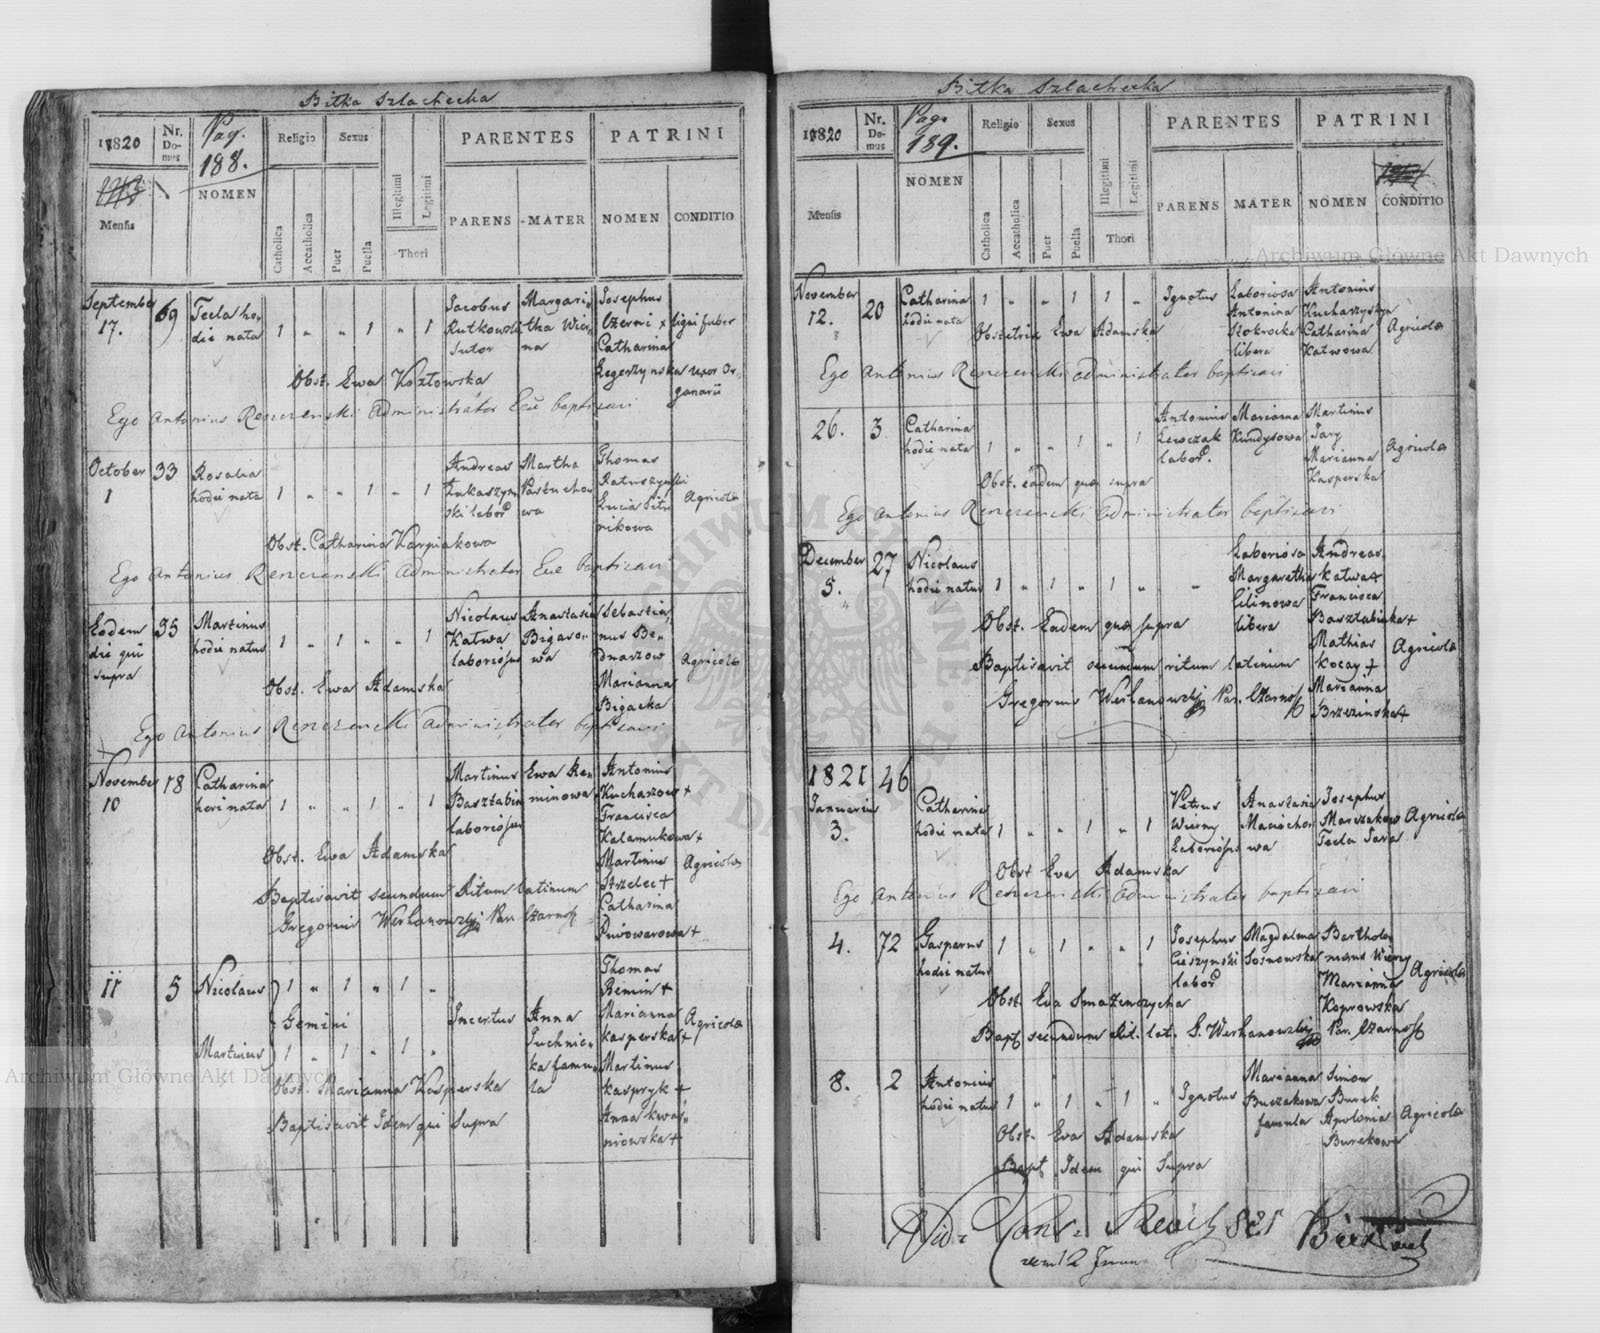 Bitka Szlachecka
1820
Nr. Do-mus
Pag. 188.
Religio
Sexus
PARENTES
PATRINI
Mensis
NOMEN
Catholica
Accatholica
Puer
Puella
Illegitimi
Legitimi
Thori
PARENS
MATER
NOMEN
CONDITIO
September 17.
69
Tecla ho-
die nata
1 " " 1 " 1
Jacobus
Rutkowski
Sutor
Margari-
tha Wie-
na
Josephus
Czerni x
Catharina
ligni faber
uxor Or-
ganarii
Obst. Ewa Kozłowska
Ego Antonius Renczenski Administrator Ecc baptisavi
October
1
33
Rosalia
hodie nata
1 " " 1 " 1
Andreas
Łukaszyn-
ski labor
Martha
Pastucho-
wa
Thomas
Ratuszyński
Lucia Sit-
nikowa
Agricolæ
Obst. Catharina Karpiakowa
Ego Antonius Renczenski Administrator Ecc baptisavi
Eodem
die qui
supra
35
Martinus
hodie natus
1 " 1 " " 1
Nicolaus
Katwa
laboriosus
Anastasia
Bigaso-
wa
Sebastia-
nus Be-
dnarzow
Marianna
Bigacka
Agricolæ
Obst. Ewa Adamska
Ego Antonius Renczenski Administrator baptisavi
November
10
18
Catharina
heri nata
1 " " 1 " 1
Martinus
Basztabin
laboriosus
Ewa Re-
minowa
Antonius
Kucharzow +
Francisca
Kalamukowa +
Martinus
Strzelec +
Catharina
Piwowarowa +
Agricolæ
Obst. Ewa Adamska
Baptisavit secundum Ritum latinum
Gregorius Werhanowskj Par. Czarnos
11
5
Nicolaus
1 " 1 " 1 "
Gemini
Martinus
1 " 1 " 1 "
Incertus
Anna
Juchnic-
ka famu-
la
Thomas
Remin +
Marianna
Kasperska +
Martinus
Kaspryk +
Anna Kwas-
niowska +
Agricolæ
Obst. Marianna Kasperska
Baptisavit Idem qui Supra
Bitka Szlachecka
1820
Nr. Do-mus
Pag. 189.
Religio
Sexus
PARENTES
PATRINI
Mensis
NOMEN
Catholica
Accatholica
Puer
Puella
Illegitimi
Legitimi
Thori
PARENS
MATER
NOMEN
CONDITIO
November
12.
20
Catharina
hodie nata
1 " " 1 1 "
Ignotus
Laboriosa
Antonina
Stokrocka
libera
Antonius
Kucharzyszyn
Catharina
Katwowa
Agricolæ
Obstetrix Ewa Adamska
Ego Antonius Renczenski administrator baptisavi
26.
3
Catharina
hodie nata
1 " " 1 " 1
Antonius
Lewczak
labor.
Marianna
Kundysowa
Martinus
Jary
Marianna
Kasperska
Agricolæ
Obst. eadem quæ supra
Ego Antonius Renczenski administrator baptisavi
December
5.
27
Nicolaus
hodie natus
1 " 1 " 1 " "
Laboriosa
Margaretha
Cilinowa
libera
Andreas
Katwa +
Francisca
Basztabinka +
Mathias
Kocay +
Marianna
Brzezinska +
Agricolæ
Obst. Eadem quæ supra
Baptisavit secundum ritum latinum
Gregorius Werhanowskj Par. Czarnos
1821
Januarius
3.
46
Catharina
hodie nata
1 " " 1 " 1
Petrus
Wierny
Laboriosus
Anastasia
Maciocho-
wa
Josephus
Marczakow
Tecla Jara
Agricolæ
Obst Ewa Adamska
Ego Antonius Renczenski administrator baptisavi
4.
72
Gasparus
hodie natus
1 " 1 " " 1
Josephus
Cieszynski
labor
Magdalena
Sosnowska
Bartholo-
mæus Wierny
Marianna
Koprowska
Agricolæ
Obst Eva Smażenczycha
Bapt secundum Rit. lat. G. Werhanowskj Par. Czarnos
8.
2
Antonius
hodie natus
1 " 1 " 1 "
Ignotus
Marianna
Buczakowa
famula
Simon
Burek
Apolonia
Burekowa
Agricolæ
Obst. Ewa Adamska
Bapt Idem qui Supra
Archiwum Główne Akt Dawnych
Archiwum Główne Akt Dawnych